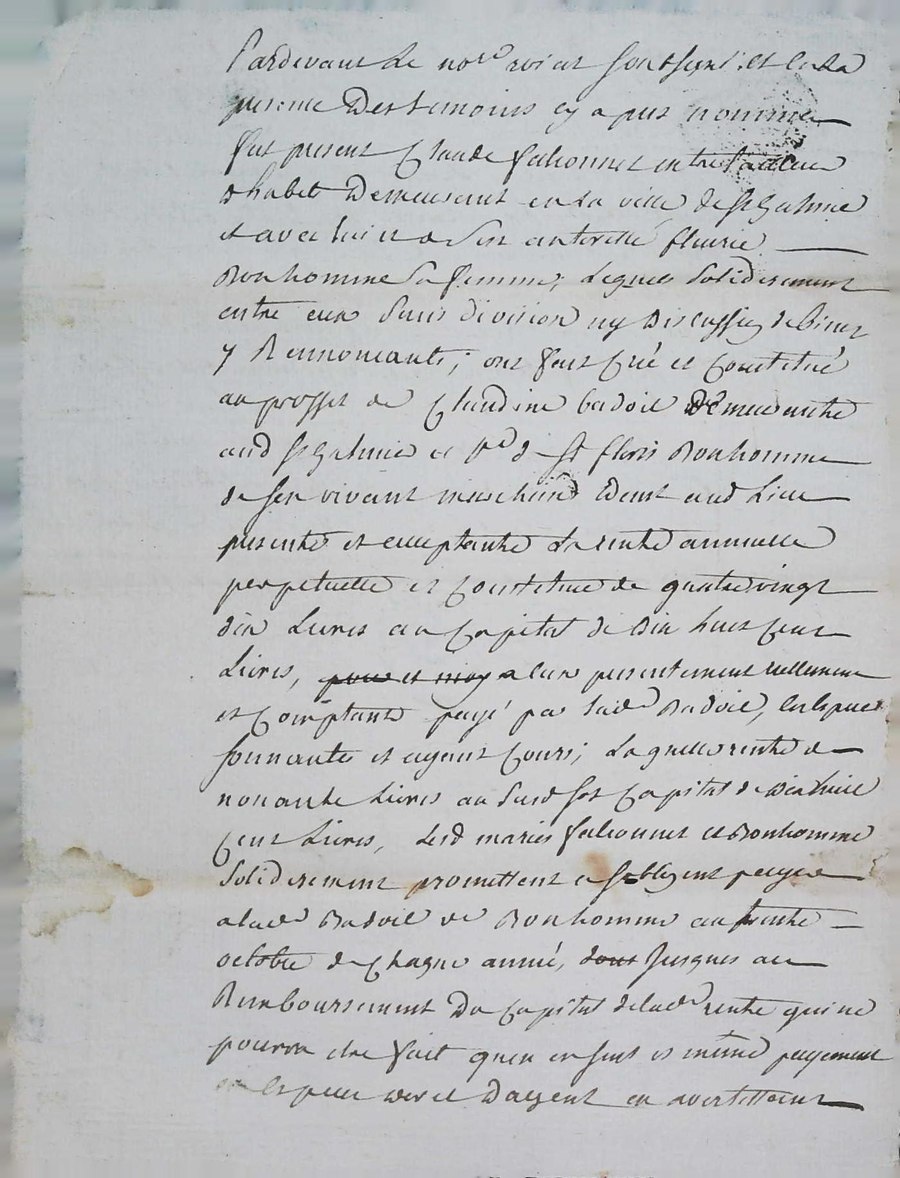 Pardevant Le no.re roial soussigné, et en La
presence Des temoins cy apres nommé
fut present Claude falconnet
d'habit Demeurant en La ville de St Galmie
et avec lui et de Son autorité fleurie
Bonhomme Sa femme, Lequels Solidairement
entre eux Sans division ny Discussion de biens
y Rennonceants; ont fait Créé et Constitué
au proffit de Claudine badoil Demeurante
aud St Galmie et Ve de St floris Bonhomme
de son vivant marchand dem.t aud Lieu
presente et acceptante La rente annuelle
perpetuelle et Constituée de quatre vingt
dix Livres au Capital de Dix huit Cent
Livres, a eux presentement reellement
et Comptant payé par lad.e Badoil, en Especes
sonnantes et ayent Cours; Laquelle rente de
nonante Livres au Susd Sort Capital de dix huit
Cent Livres, Lesd mariés falconnet et Bonhomme
Solidairement promettent et sobligent payer
a lad.e Badoil ve Bonhomme au trente
octobre de Chaque année, Jusques au
Remboursement Du Capital de lad.e rente qui ne
pourra etre fait quen un seul et même payement
en Especes d'or et D'argent en avertissant